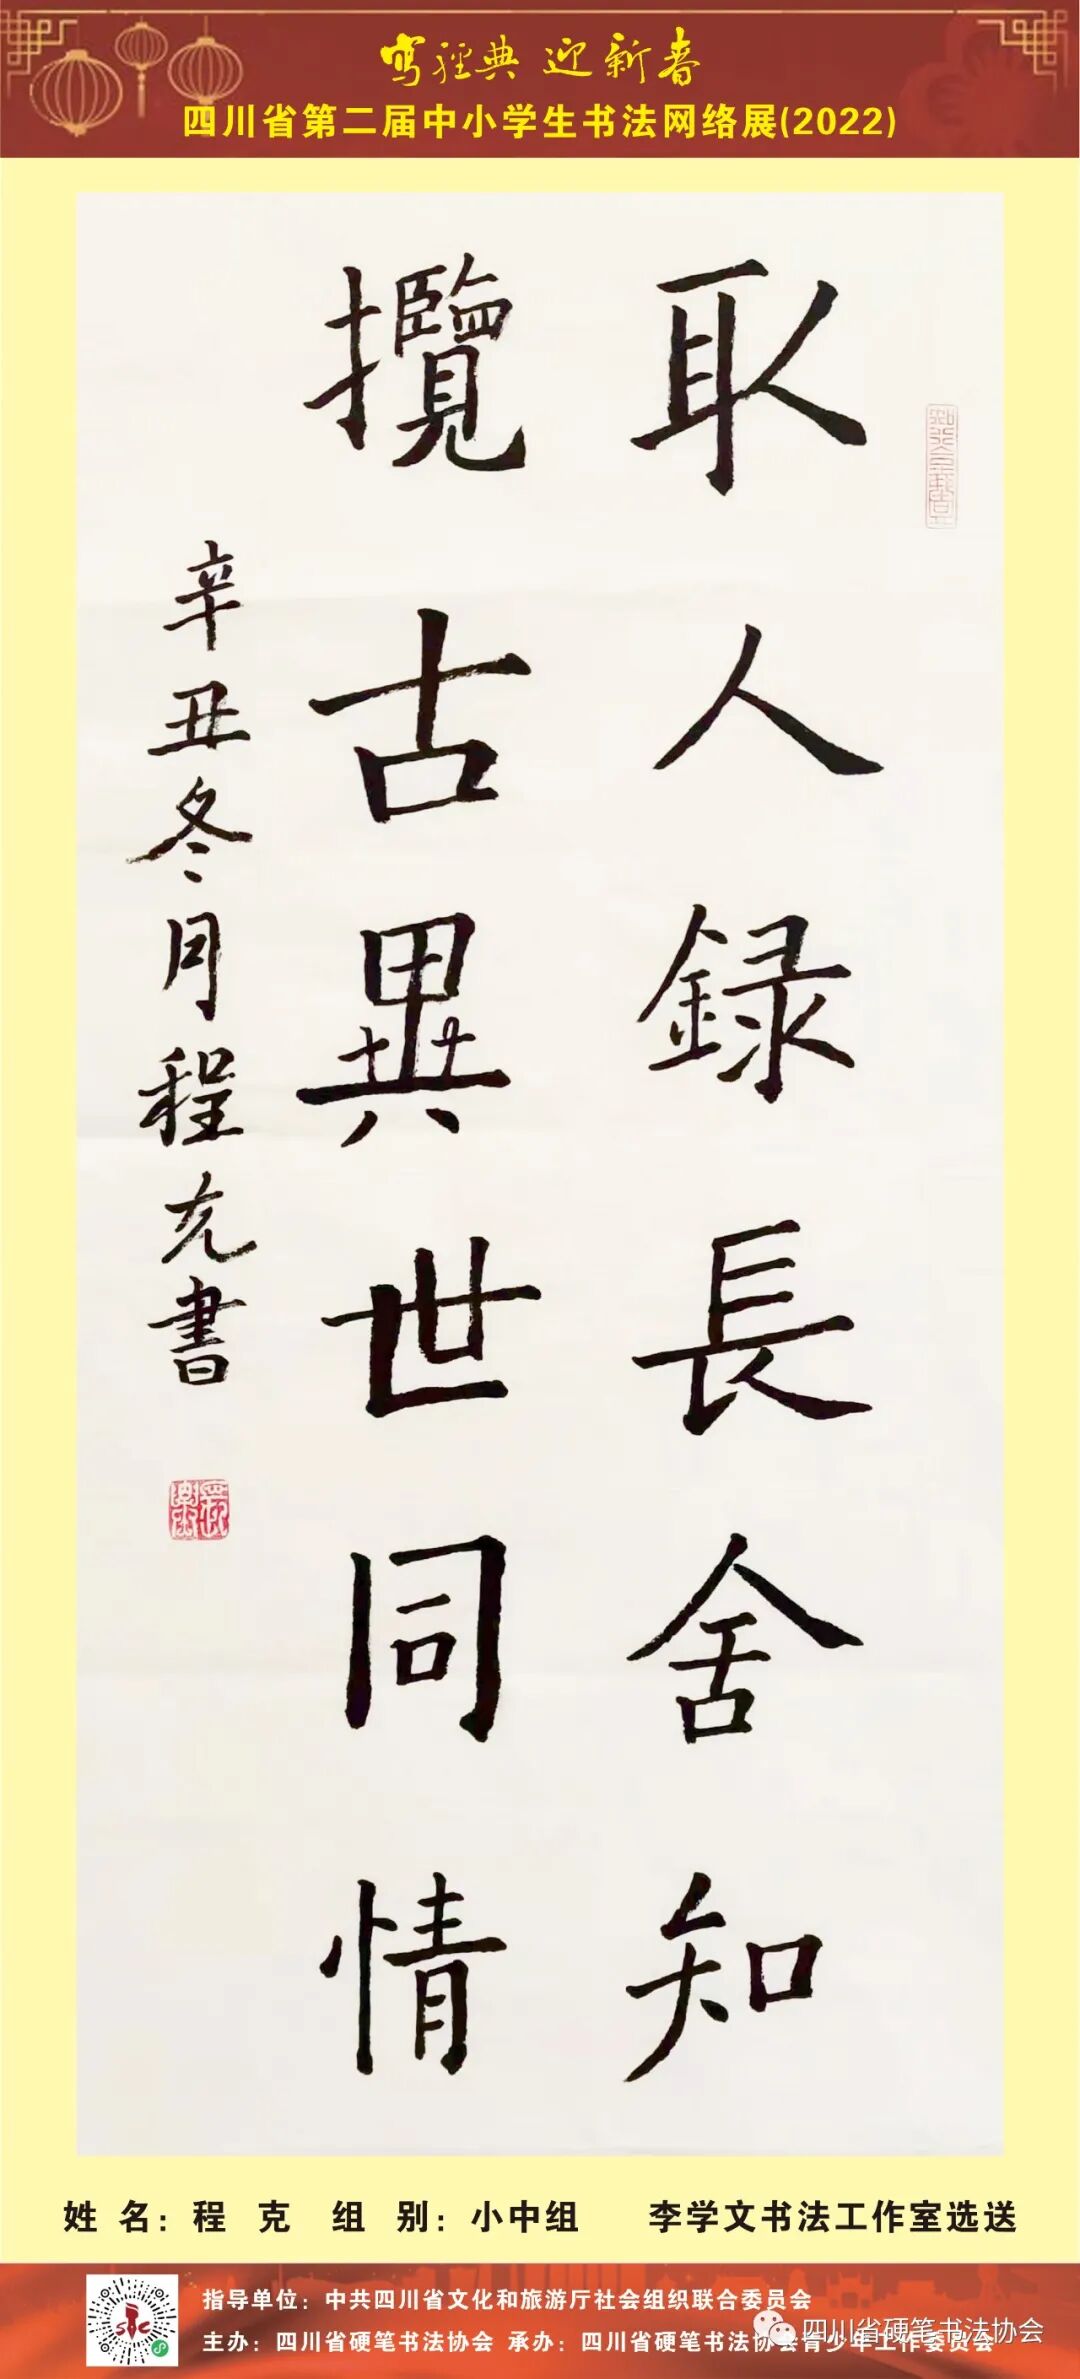 写经典 迎新春
四川省第二届中小学生书法网络展(2022)
取人録長舍知
攬古異世同情
辛丑冬月程克書
姓 名：程 克 组 别：小中组 李学文书法工作室选送
指导单位：中共四川省文化和旅游厅社会组织联合委员会
主办：四川省硬笔书法协会 承办：四川省硬笔书法协会青少年工作委员会
四川省硬笔书法协会